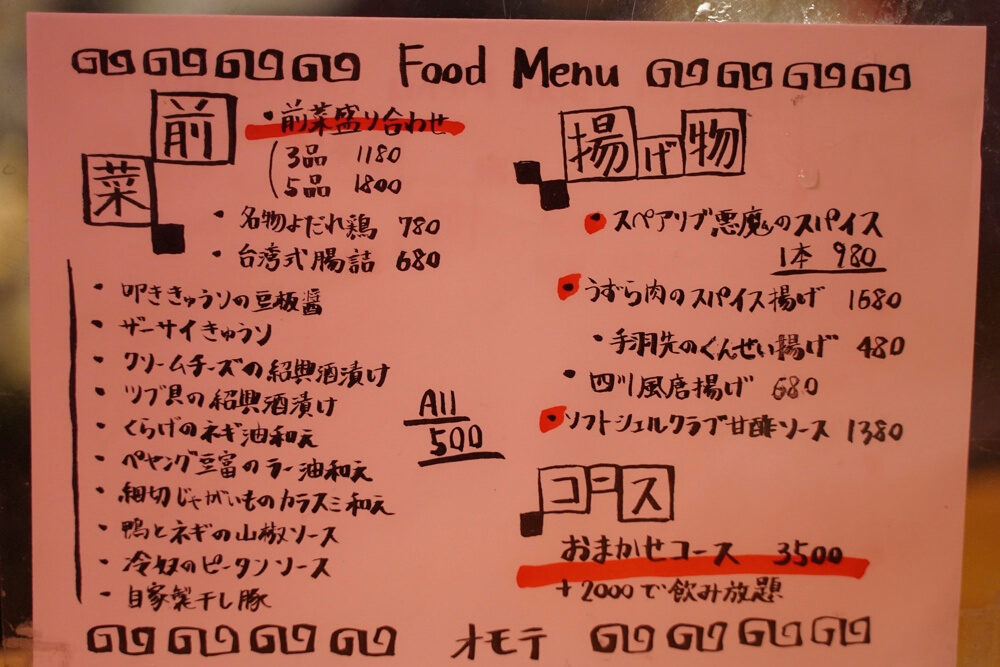 Food Menu
前菜
・前菜盛り合わせ
3品 1180
5品 1800
・名物よだれ鶏 780
・台湾式腸詰 680
・叩ききゅうりの豆板醤
・ザーサイきゅうり
・クリームチーズの紹興酒漬け
・ツブ貝の紹興酒漬け
・くらげのネギ油和え
・ペヤング豆富のラー油和え
・細切じゃがいものカラスミ和え
・鴨とネギの山椒ソース
・冷奴のピータンソース
・自家製干し豚
All
500
揚げ物
・スペアリブ悪魔のスパイス
1本 980
・うずら肉のスパイス揚げ 1680
・手羽先のくんせい揚げ 480
・四川風唐揚げ 680
・ソフトシェルクラブ甘酢ソース 1380
コース
おまかせコース 3500
+2000で飲み放題
オモテ